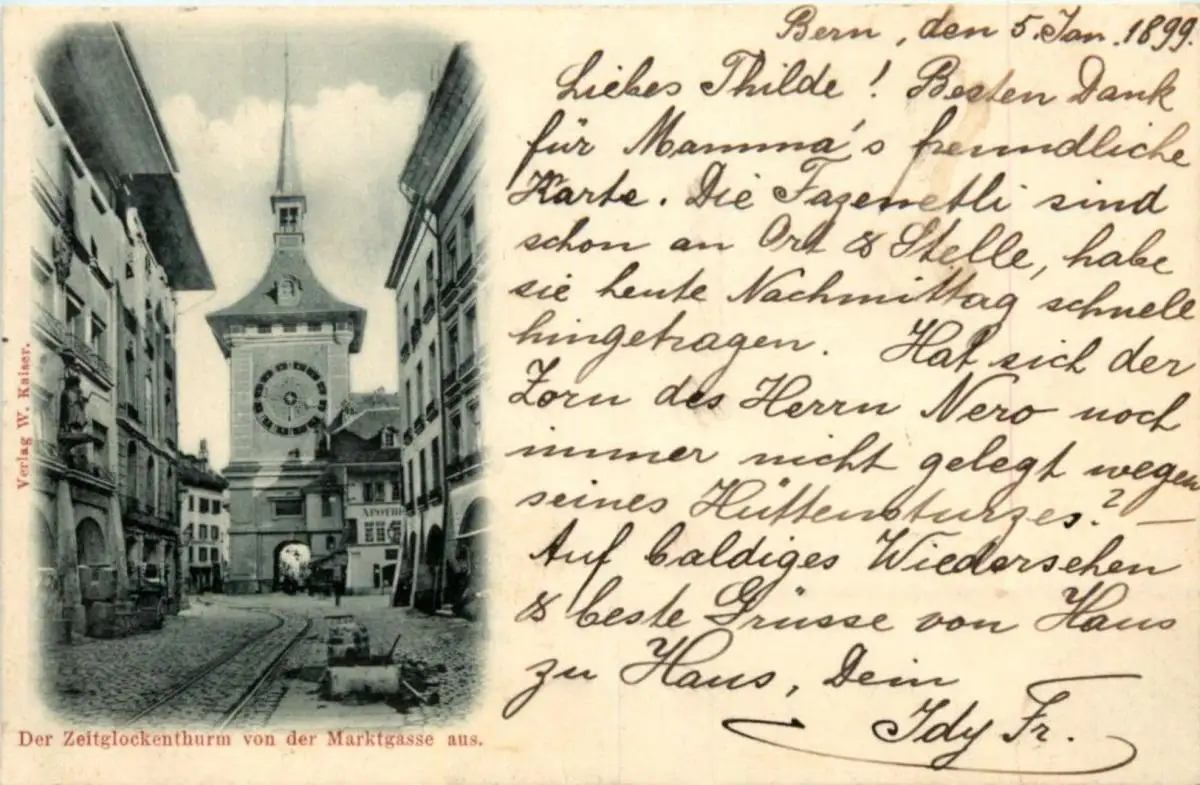 Bern, den 5. Jan. 1899.
Liebes Thilde! Besten Dank
für Mamma's freundliche
Karte. Die Fazenetli sind
schon an Ort & Stelle, habe
sie heute Nachmittag schnell
hingetragen. Hat sich der
Zorn des Herrn Nero noch
immer nicht gelegt wegen
seines Hüttensturzes? —
Auf baldiges Wiedersehen
& beste Grüsse von Haus
zu Haus, Dein
Idy Fr.
Verlag W. Kaiser.
APOTH
Der Zeitglockenthurm von der Marktgasse aus.